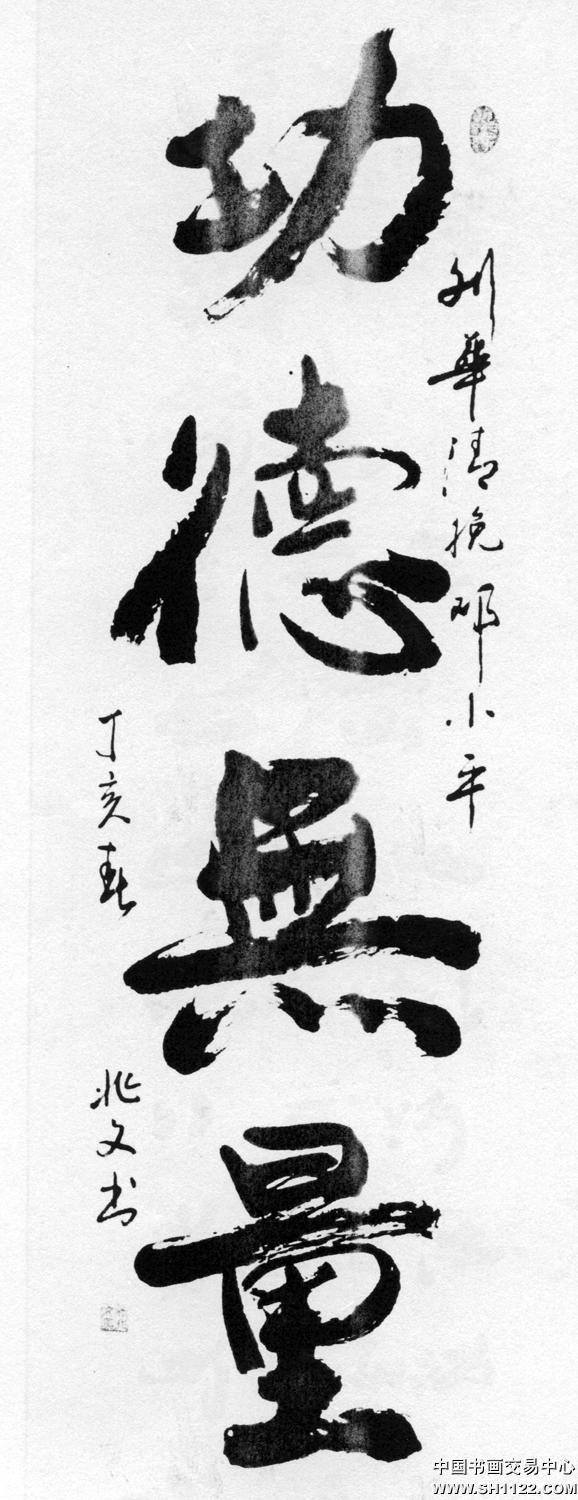 刘華清挽邓小平
功德無量
丁亥春
兆文书
中国书画交易中心
WWW.SH1122.COM